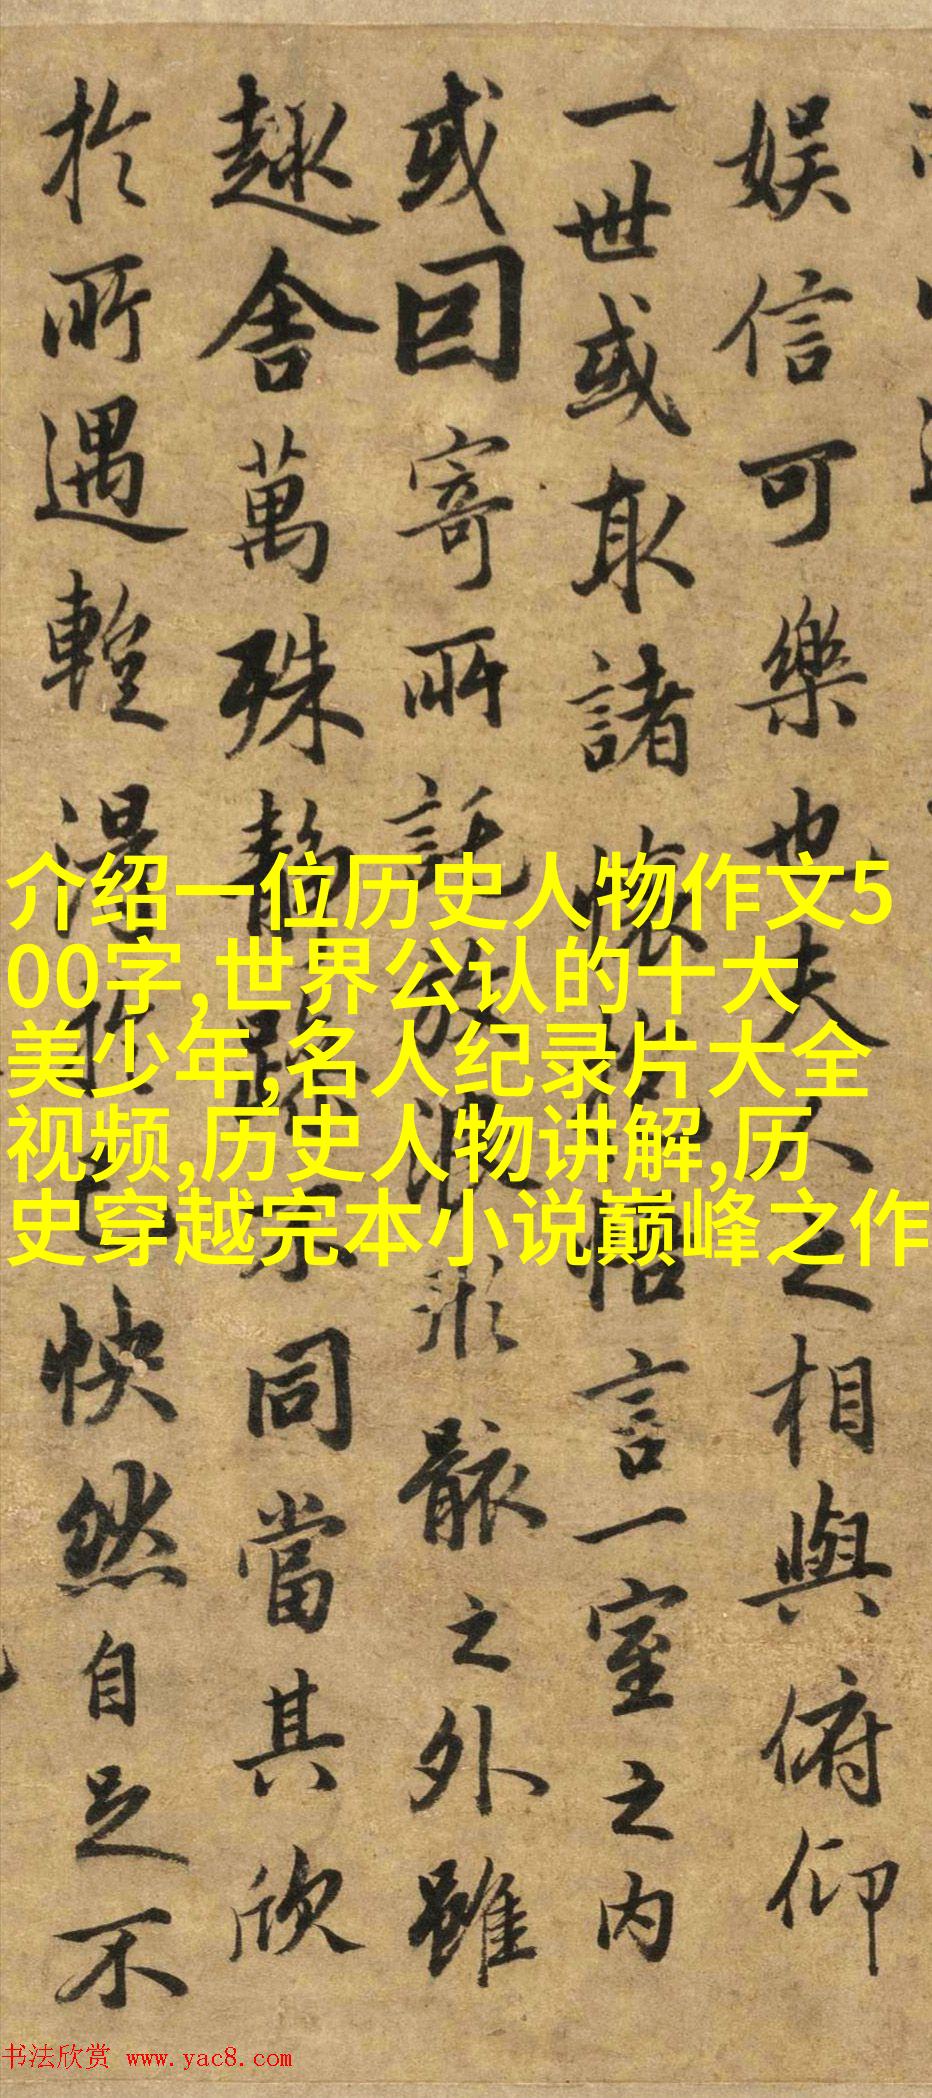 娱信可樂也夫人之相與俯仰
一世或取諸懷抱悟言一室之内
或因寄所託放浪形骸之外雖
趣舍萬殊靜躁不同當其欣
於所遇得於己快然自足不
介绍一位历史人物作文5
00字,世界公认的十大
美少年,名人纪录片大全
视频,历史人物讲解,历
史穿越完本小说巅峰之作
书法欣赏 www.yac8.com